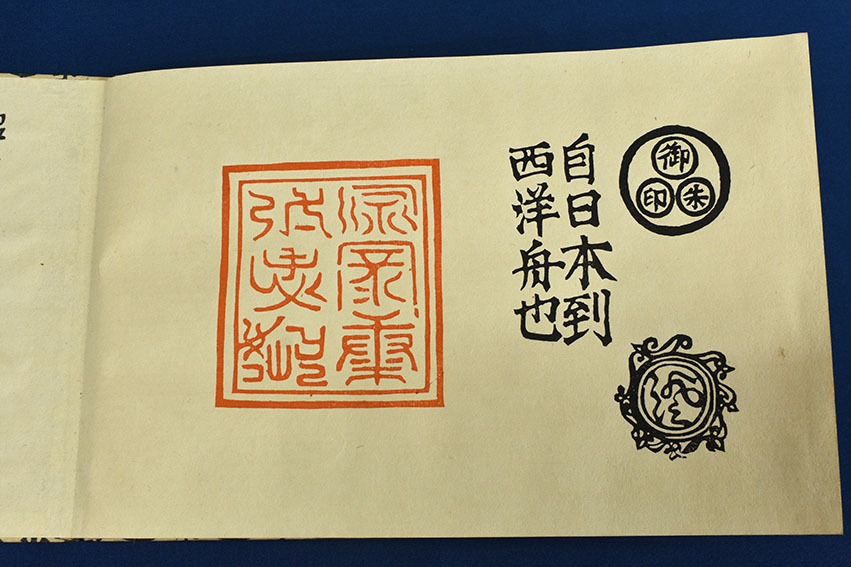 御朱印
自日本到
西洋舟也
源家康
弘忠恕